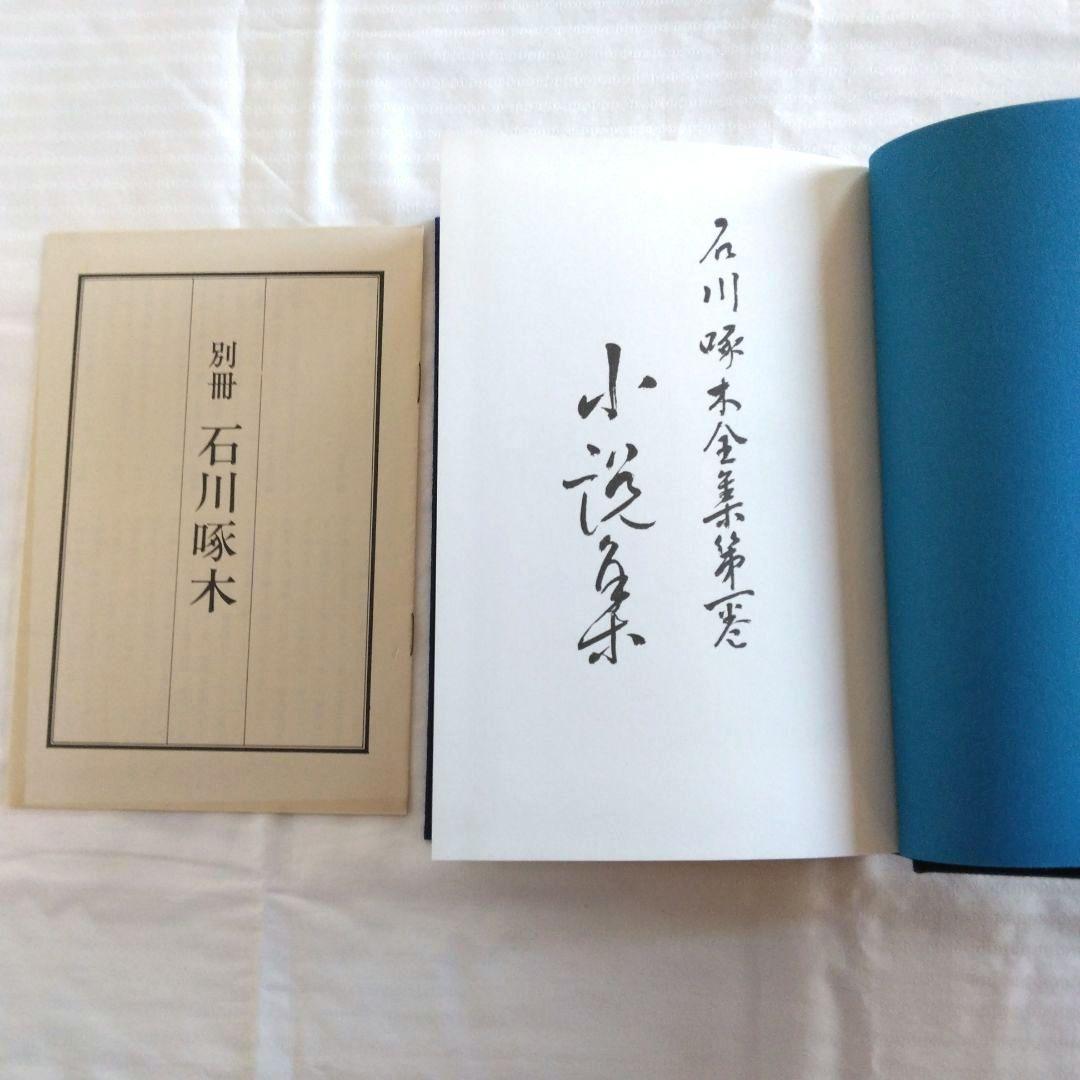 別冊 石川啄木
石川啄木全集第一巻
小説集